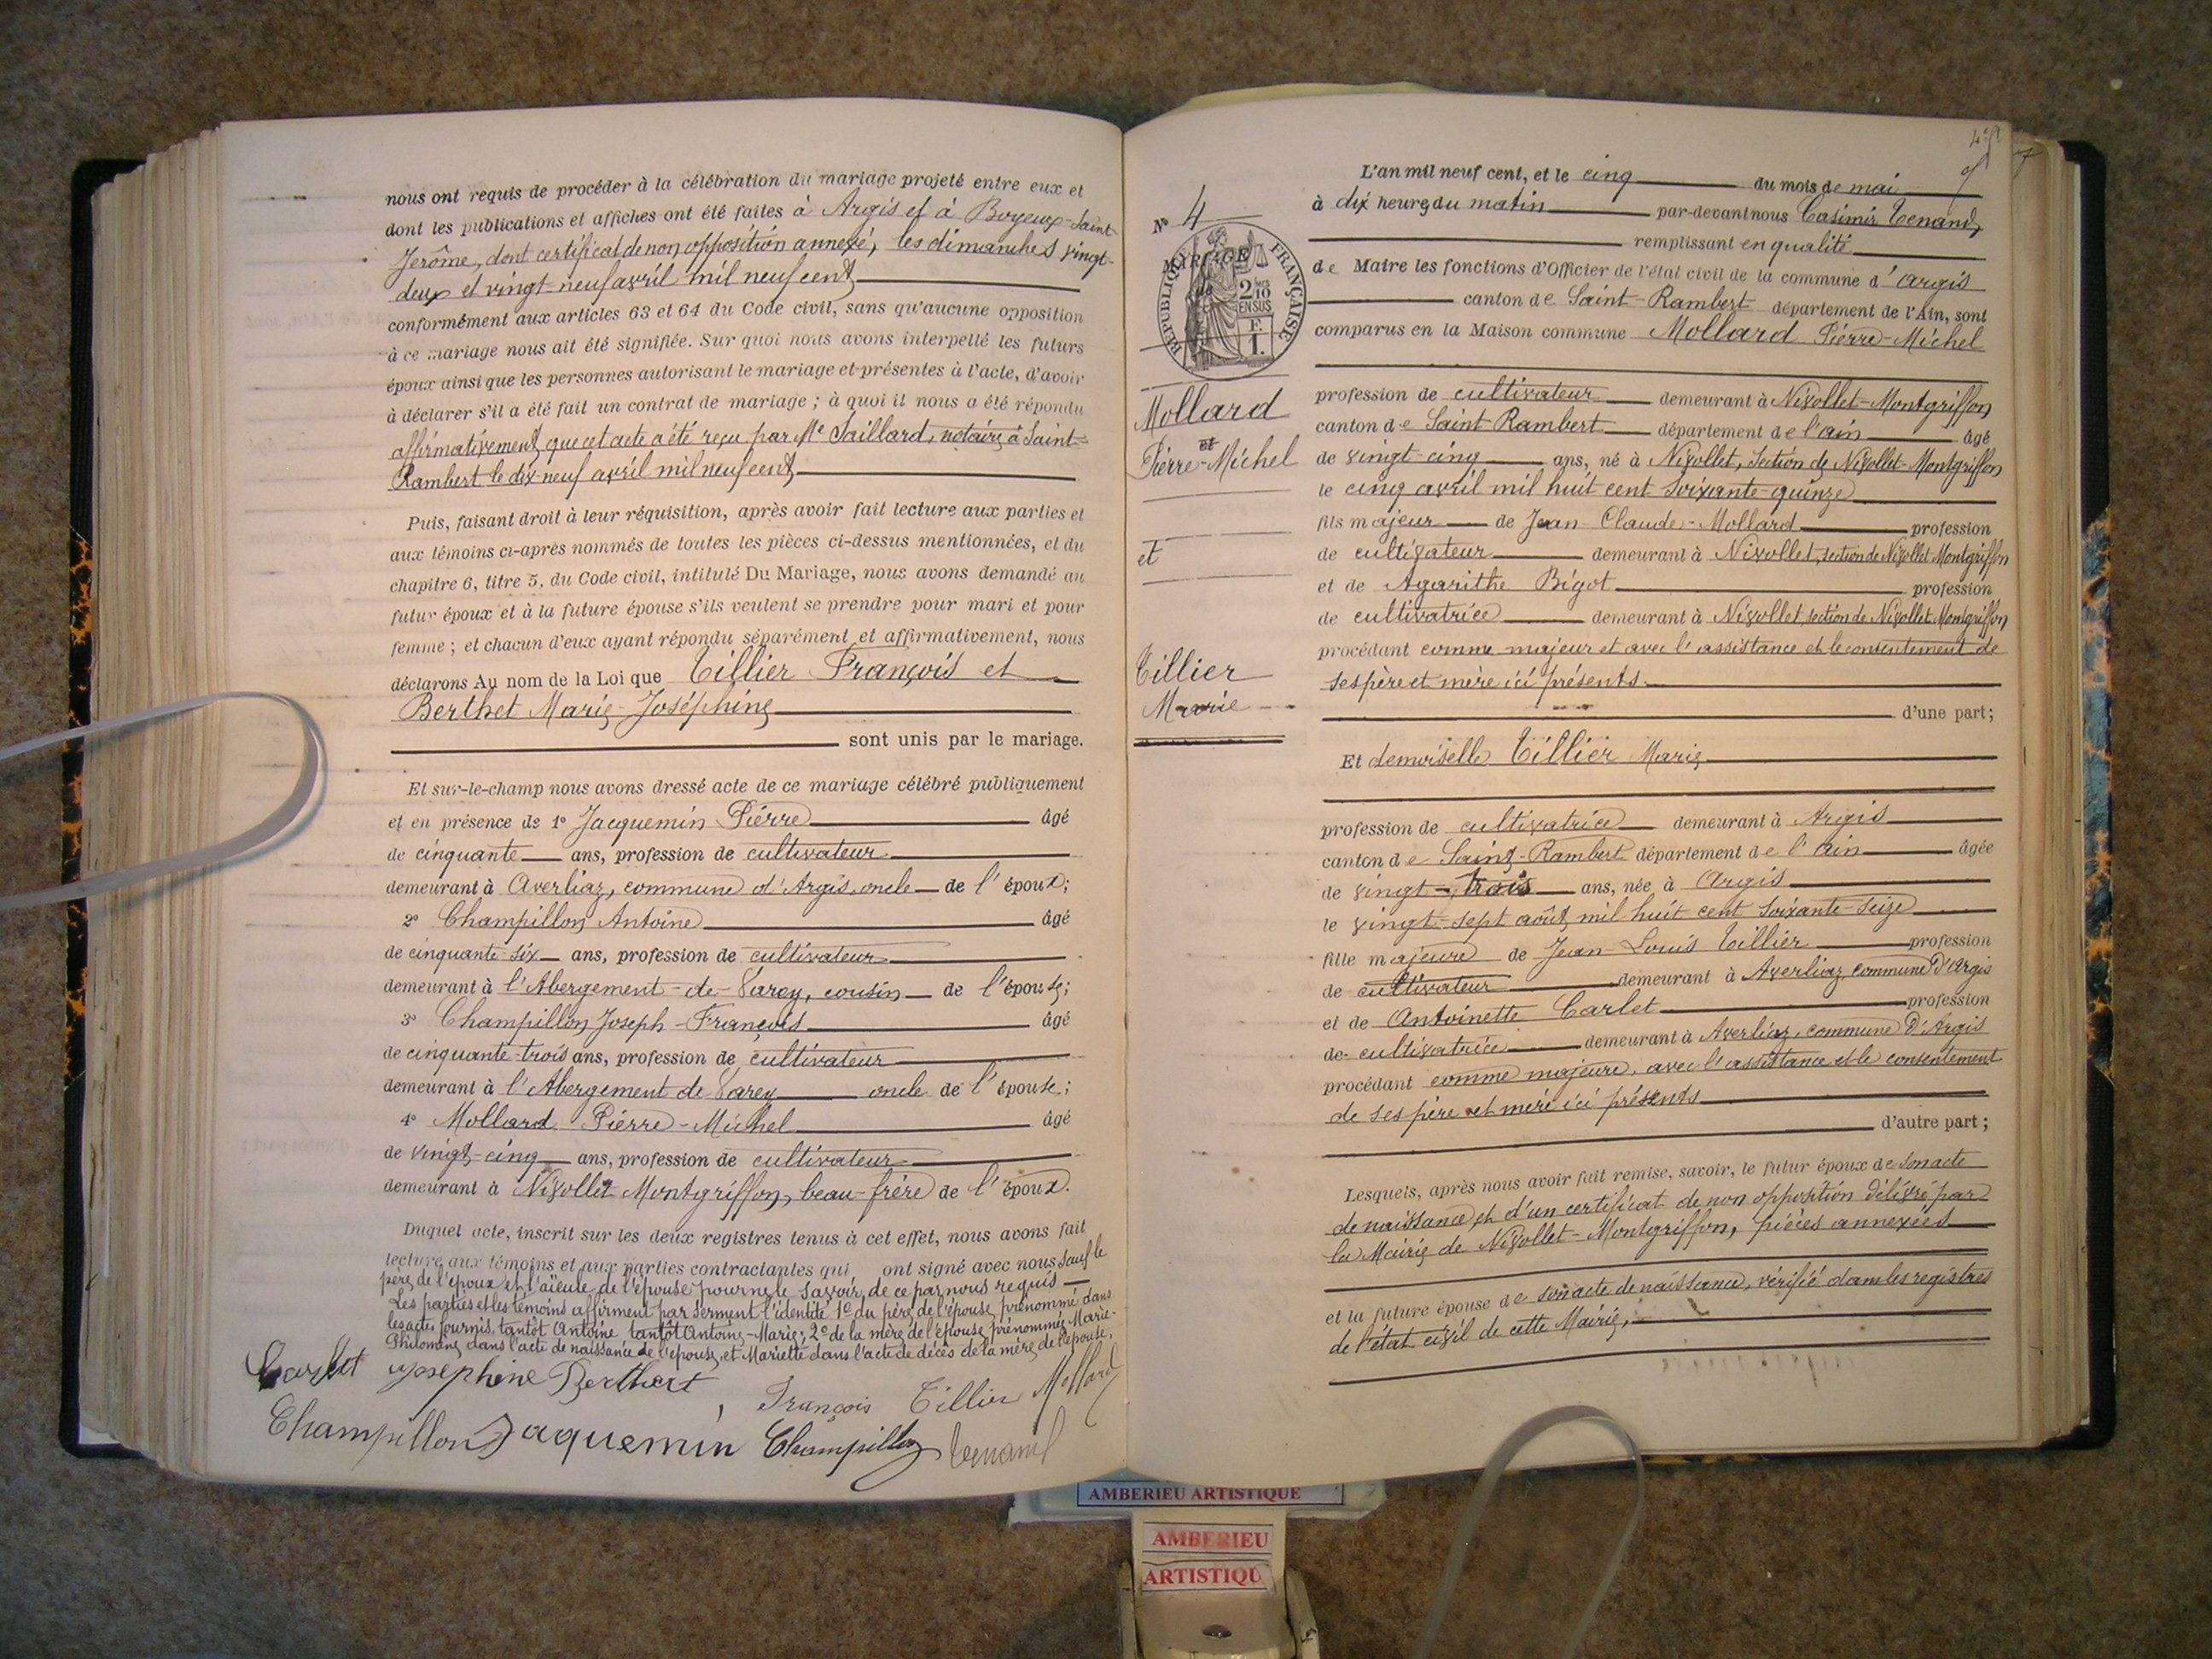 nous ont requis de procéder à la célébration du mariage projeté entre eux et
dont les publications et affiches ont été faites à Argis et à Boyeux-Saint-
Jérôme, dont certificat de non opposition annexé, les dimanches vingt-
deux et vingt-neuf avril mil neuf cent
conformément aux articles 63 et 64 du Code civil, sans qu'aucune opposition
à ce mariage nous ait été signifiée. Sur quoi nous avons interpellé les futurs
époux ainsi que les personnes autorisant le mariage et présentes à l'acte, d'avoir
à déclarer s'il a été fait un contrat de mariage ; à quoi il nous a été répondu
affirmativement, que cet acte a été reçu par Me Saillard, notaire à Saint-
Rambert le dix-neuf avril mil neuf cent
Puis, faisant droit à leur réquisition, après avoir fait lecture aux parties et
aux témoins ci-après nommés de toutes les pièces ci-dessus mentionnées, et du
chapitre 6, titre 5, du Code civil, intitulé Du Mariage, nous avons demandé au
futur époux et à la future épouse s'ils veulent se prendre pour mari et pour
femme ; et chacun d'eux ayant répondu séparément et affirmativement, nous
déclarons Au nom de la Loi que Tillier François et
Berthet Marie-Joséphine
sont unis par le mariage.
Et sur-le-champ nous avons dressé acte de ce mariage célébré publiquement
et en présence de 1° Jacquemin Pierre âgé
de cinquante ans, profession de cultivateur
demeurant à Averliaz, commune d'Argis, oncle de l'époux;
2° Champillon Antoine âgé
de cinquante-six ans, profession de cultivateur
demeurant à l'Abergement-de-Varey, cousin de l'épouse;
3° Champillon Joseph-François âgé
de cinquante-trois ans, profession de cultivateur
demeurant à l'Abergement de Varey oncle de l'épouse;
4° Mollard Pierre-Michel âgé
de vingt-cinq ans, profession de cultivateur
demeurant à Nivollet Montgriffon, beau-frère de l'époux.
Duquel acte, inscrit sur les deux registres tenus à cet effet, nous avons fait
lecture aux témoins et aux parties contractantes qui ont signé avec nous sauf le
père de l'époux et l'aïeule de l'épouse pour ne le savoir, de ce par nous requis
Les parties et les témoins affirment par serment l'identité 1° du père de l'épouse, prénommé dans
les actes fournis, tantôt Antoine tantôt Antoine-Marie; 2° de la mère de l'épouse prénommée Marie-
Philomène dans l'acte de naissance de l'épouse, et Mariette dans l'acte de décès de la mère de l'épouse.
Carlet Josephine Berthet François Tillier Mollard
Champillon Jaquemin Champillon Tenand
N° 4
MARIAGE
de
RÉPUBLIQUE FRANÇAISE
2 10
EN SUS
F.
1.
Mollard
et
Pierre-Michel
et
Tillier
Marie
L'an mil neuf cent, et le cinq du mois de mai
à dix heures du matin par-devant nous Casimir Tenand,
remplissant en qualité
de Maire les fonctions d'Officier de l'état civil de la commune d'Argis
canton de Saint-Rambert département de l'Ain, sont
comparus en la Maison commune Mollard Pierre-Michel
profession de cultivateur demeurant à Nivollet-Montgriffon
canton de Saint-Rambert département de l'ain âgé
de vingt-cinq ans, né à Nivollet, section de Nivollet-Montgriffon
le cinq avril mil huit cent soixante-quinze
fils majeur de Jean-Claude Mollard profession
de cultivateur demeurant à Nivollet, section de Nivollet Montgriffon
et de Agarithe Bigot profession
de cultivatrice demeurant à Nivollet, section de Nivollet Montgriffon
procédant comme majeur et avec l'assistance et le consentement de
ses père et mère ici présents.
d'une part;
Et demoiselle Tillier Marie
profession de cultivatrice demeurant à Argis
canton de Saint-Rambert département de l'ain âgée
de vingt-trois ans, née à Argis
le vingt-sept août mil huit cent soixante-seize
fille majeure de Jean-Louis Tillier profession
de cultivateur demeurant à Averliaz, commune d'Argis
et de Antoinette Carlet profession
de cultivatrice demeurant à Averliaz, commune d'Argis
procédant comme majeure, avec l'assistance et le consentement
de ses père et mère ici présents
d'autre part ;
Lesquels, après nous avoir fait remise, savoir, le futur époux de son acte
de naissance et d'un certificat de non opposition délivré par
la Mairie de Nivollet-Montgriffon, pièces annexées
et la future épouse de son acte de naissance, vérifié dans les registres
de l'état civil de cette Mairie,
AMBERIEU ARTISTIQUE
AMBERIEU
ARTISTIQU